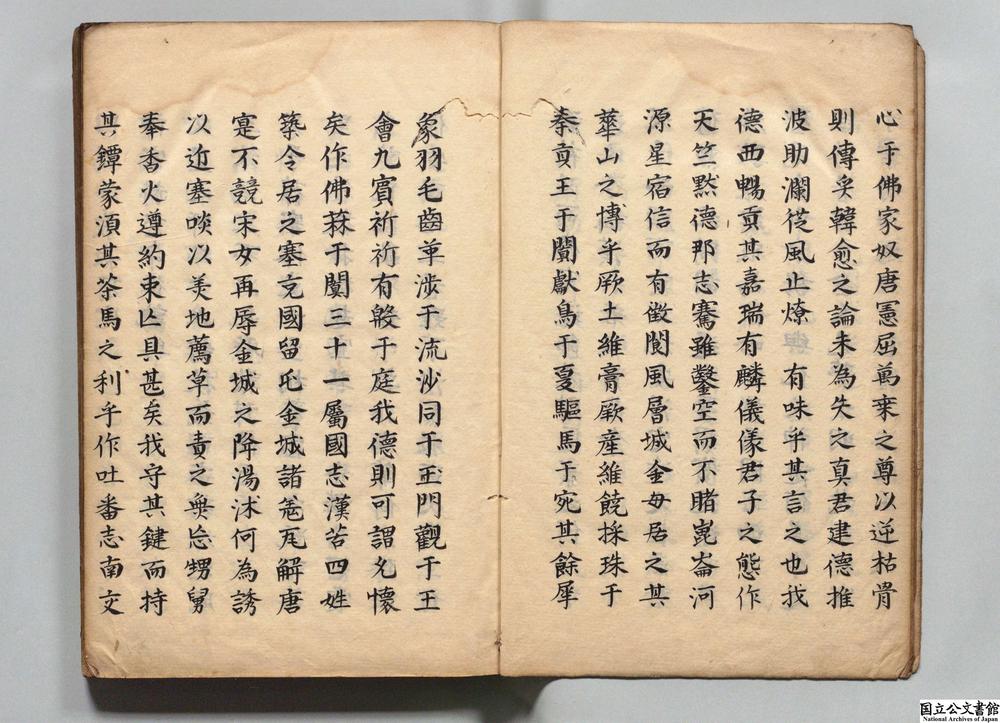 心于佛家奴唐憲屈萬乗之尊以逆枯骨
則傳奕韓愈之論未為失之真君建德推
波助瀾從風止燎有味乎其言之也我
德西暢貢其嘉瑞有麟儀儀君子之態作
天竺黙德那志騫雖鑿空而不睹崑崙河
源星宿信而有徵閬風層城金母居之其
華山之博乎厥土維膏厥産維饒採珠于
秦貢玉于闐獻鳥于夏驅馬于宛其餘犀
象羽毛齒革涉于流沙同于玉門觀于王
會九賓祈祈有殽于庭我德則可謂允懷
矣作佛菻于闐三十一屬國志漢苦四姓
築令居之塞充國留屯金城諸羌瓦解唐
寔不競宋女再辱金城之降湯沐何為誘
以近塞啖以美地薦草而責之無忘甥舅
奉香火遵約束亾具甚矣我守其鍵而持
其鐔蒙湏其茶馬之利乎作吐番志南交
国立公文書館
National Archives of Japan